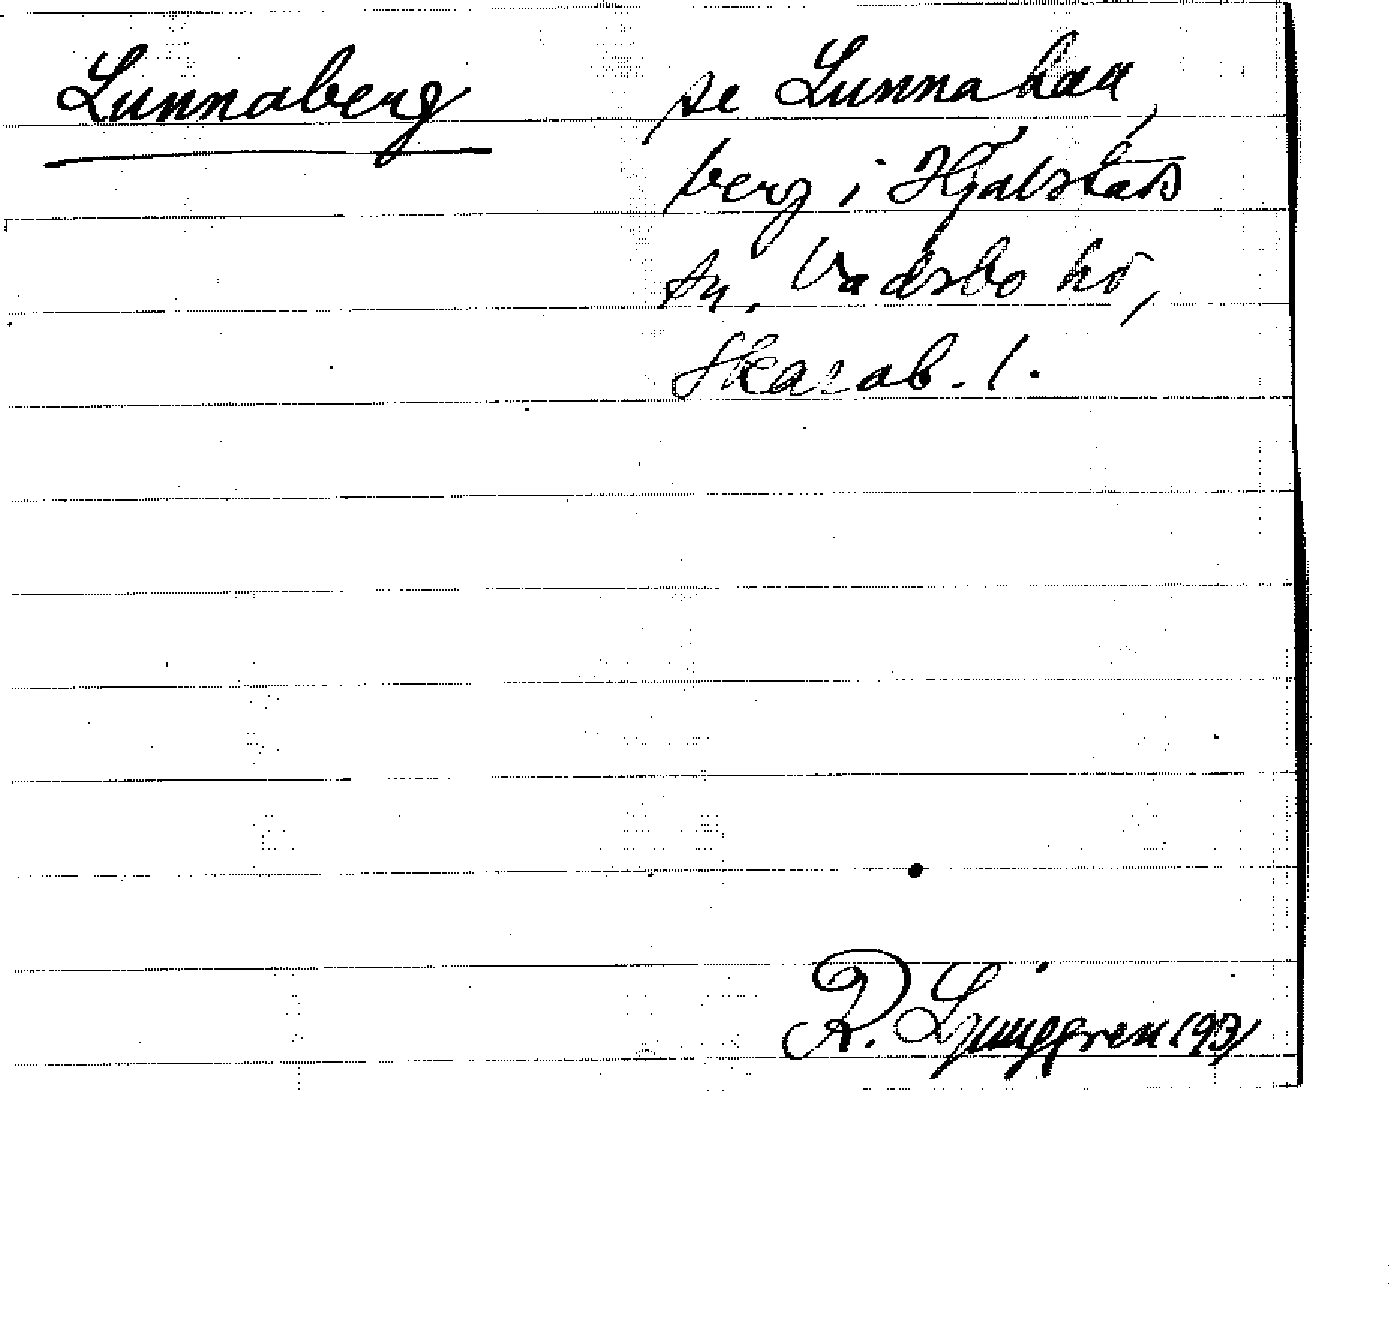 Lunnaberg
se Lunnahaa,
berg i Hjälstads
sn. Vadsbo hd,
Skarab. l.
R. Ljunggren 193